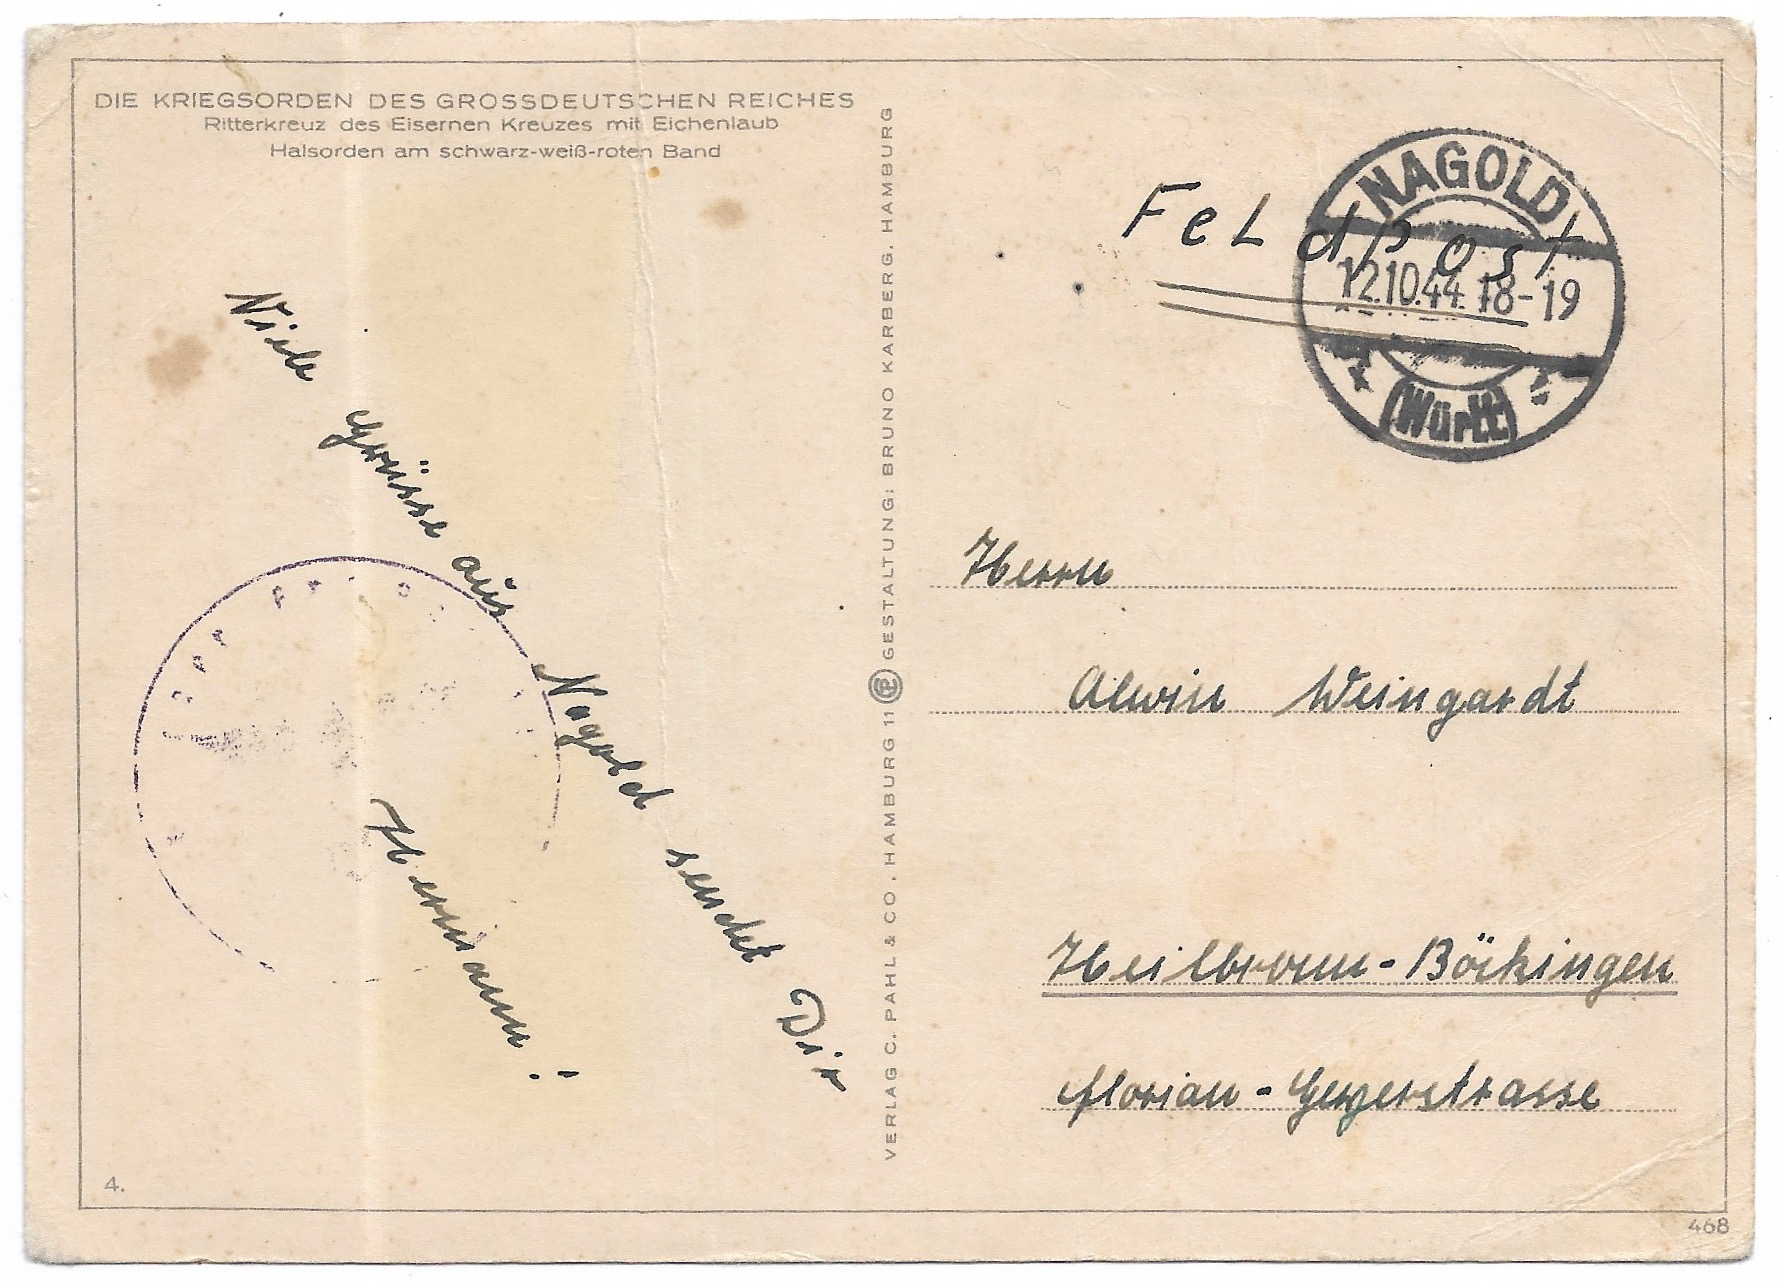 DIE KRIEGSORDEN DES GROSSDEUTSCHEN REICHES
Ritterkreuz des Eisernen Kreuzes mit Eichenlaub
Halsorden am schwarz-weiß-roten Band
Viele Grüsse aus Nagold sendet Dir
Hermann!
4.
VERLAG C. PAHL & CO. HAMBURG 11 GESTALTUNG: BRUNO KARBERG, HAMBURG
Feldpost
NAGOLD
12.10.44 18-19
(Württ)
Herrn
Alwin Weingardt
Heilbronn-Böckingen
Florian-Geyerstrasse
468